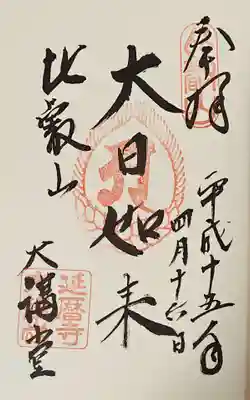 奉拝
平成十五年
四月十六日
大日如来
比叡山
大講堂
延暦寺